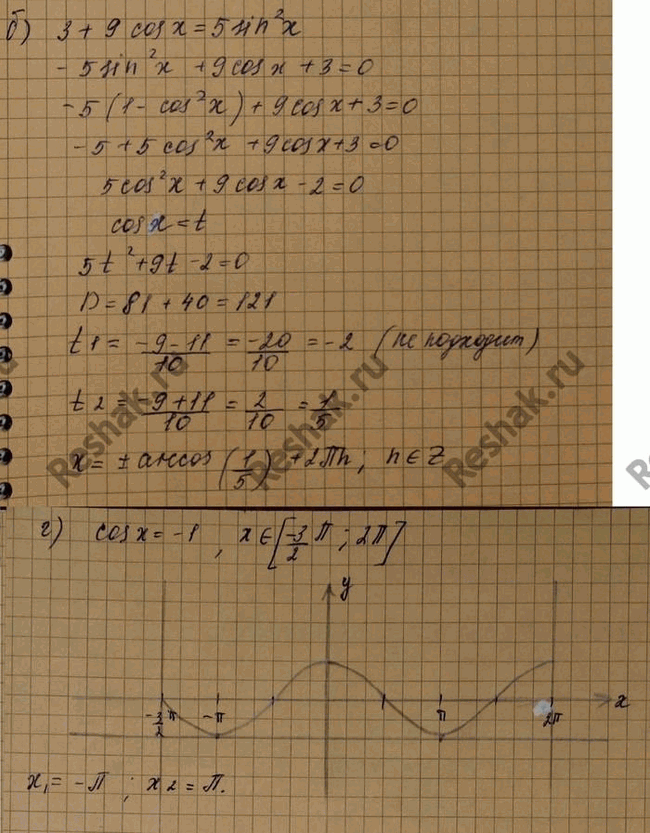 б) 3 + 9 cos x = 5 sin²x
- 5 sin²x + 9 cos x + 3 = 0
-5 (1 - cos²x) + 9 cos x + 3 = 0
-5 + 5 cos²x + 9 cos x + 3 = 0
5 cos²x + 9 cos x - 2 = 0
cos x = t
5t² + 9t - 2 = 0
D = 81 + 40 = 121
t1 = (-9-11)/10 = -20/10 = -2 (не подходит)
t2 = (-9+11)/10 = 2/10 = 1/5
x = ± arccos (1/5) + 2πn; n ∈ Z
Reshak.ru
Reshak.ru
г) cos x = -1, x ∈ [-3/2 π; 2π]
y
x
-3/2 π
-π
π
2π
x₁ = -π; x2 = π.